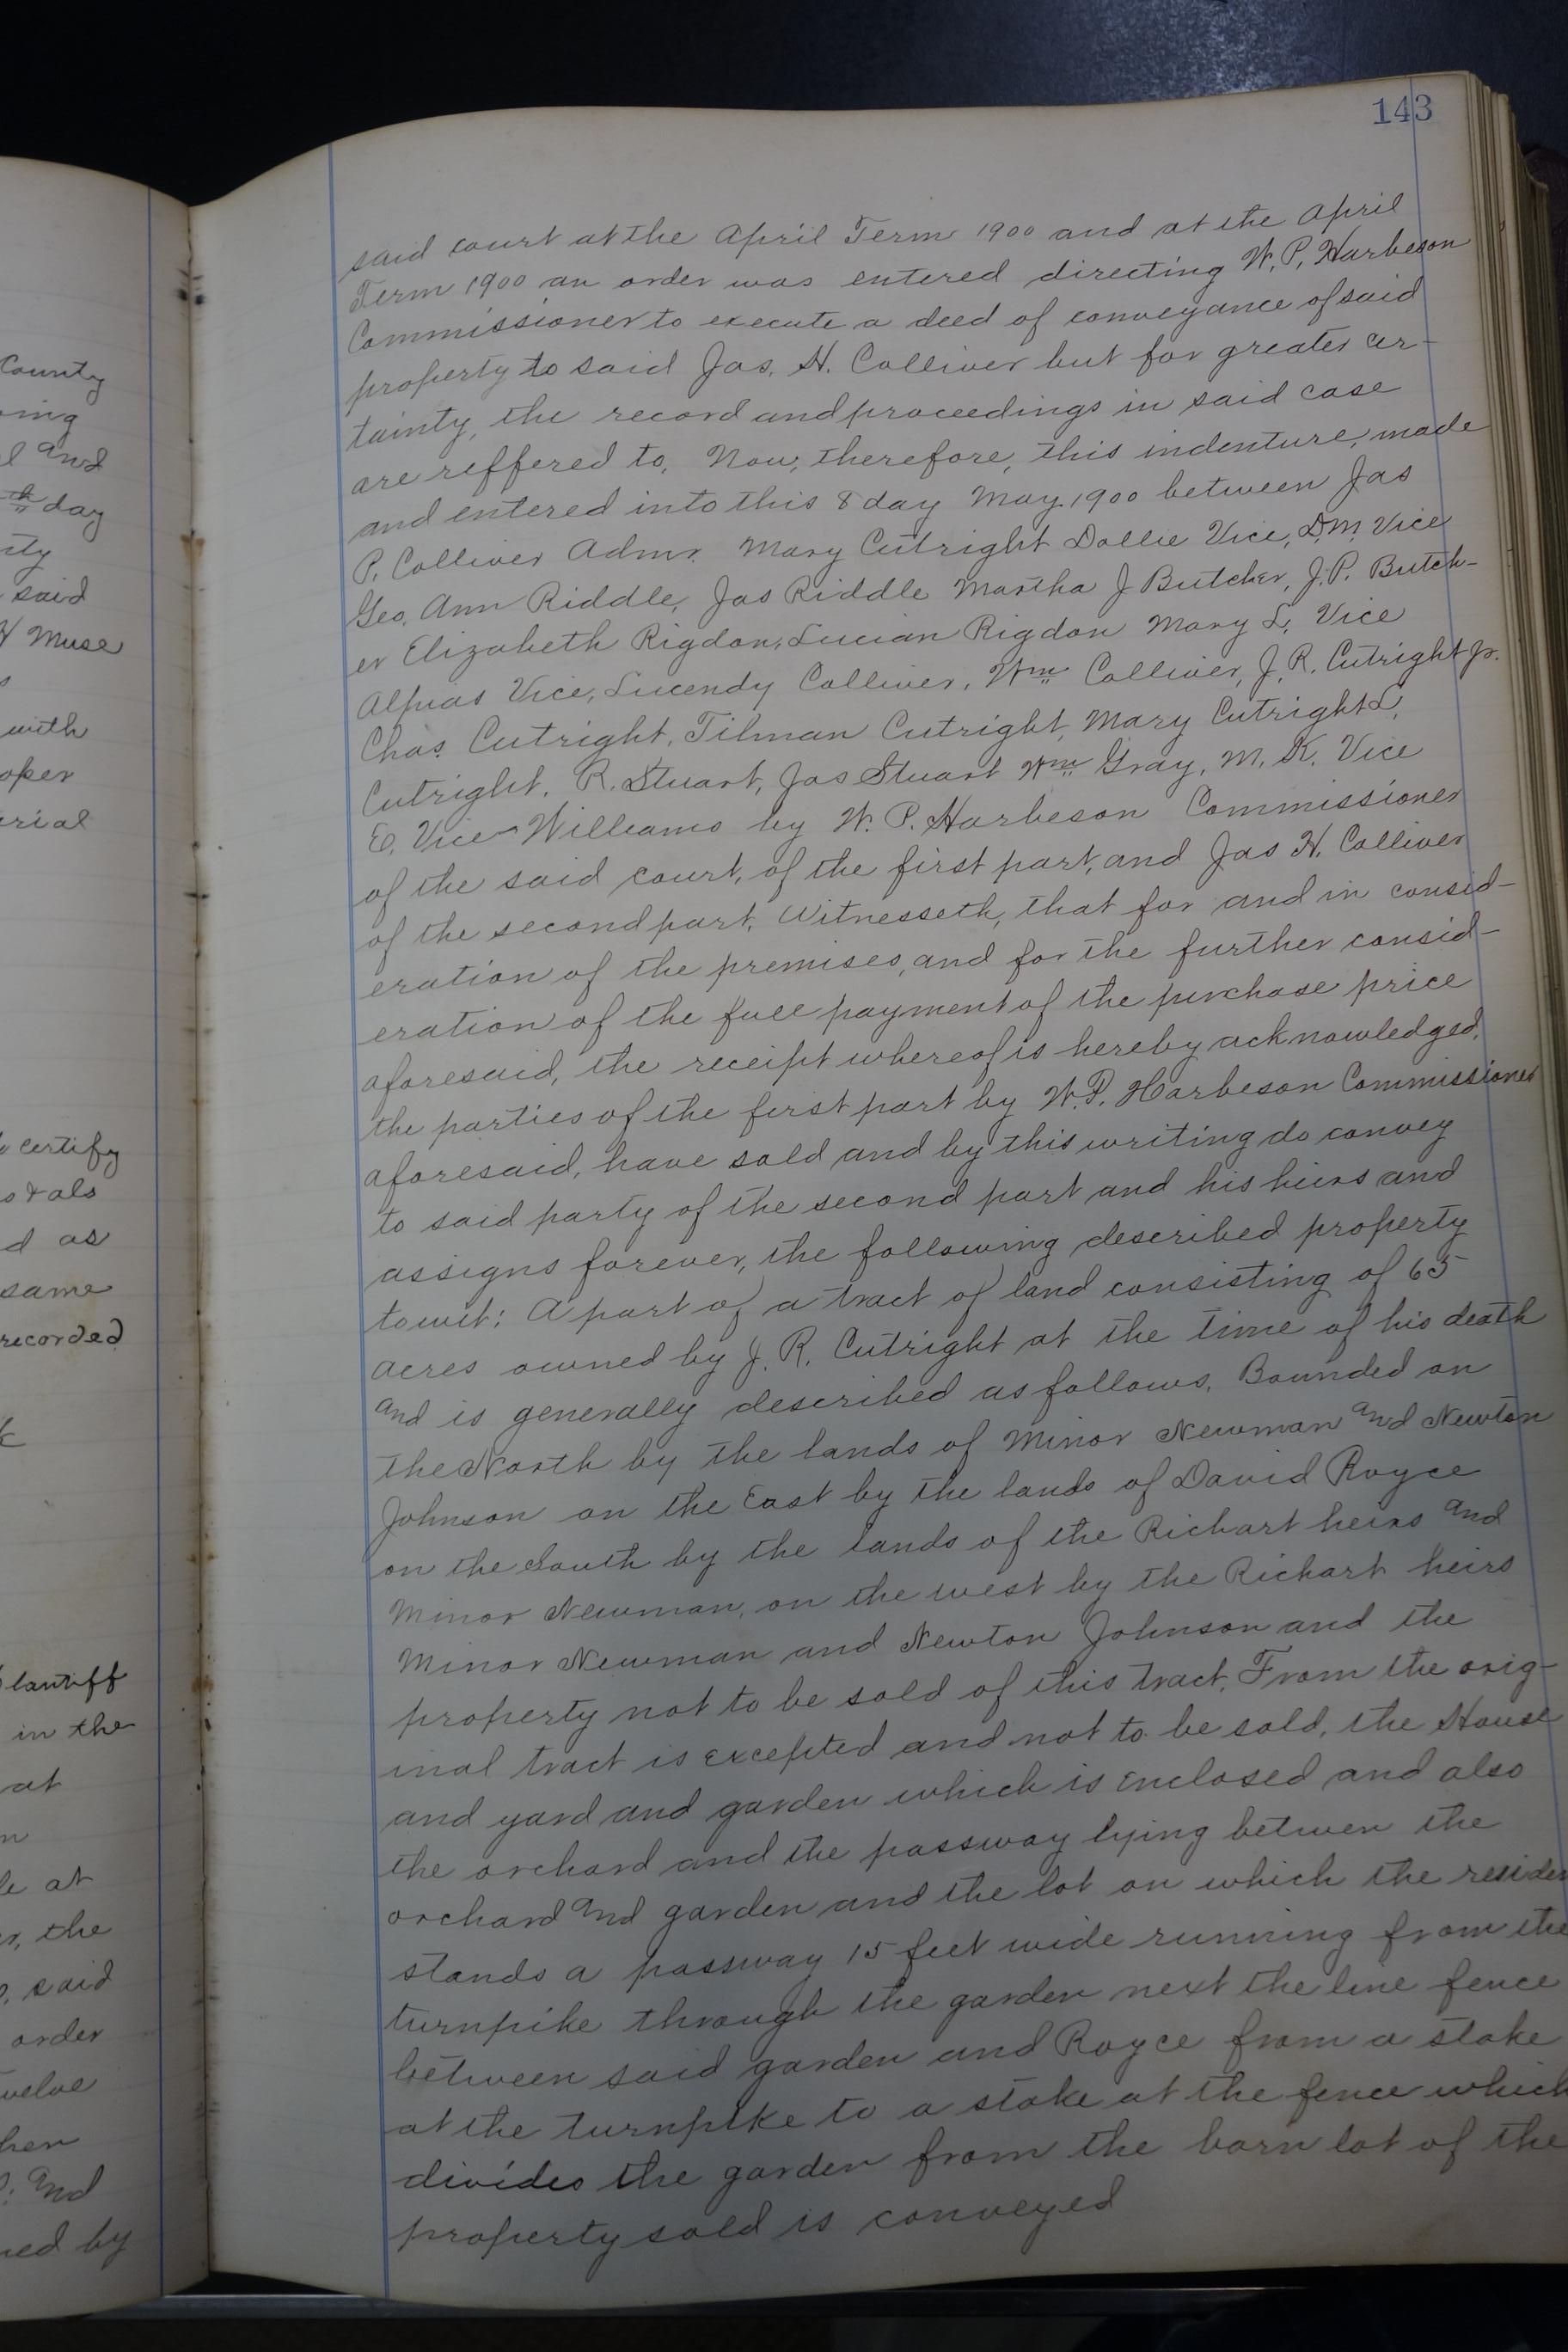 County
and
day
said
Muse
with
certify
as
same
recorded
in the
at
at
the
said
order
and
by
143
said court at the April Term 1900 and at the April
Term 1900 an order was entered directing W. P. Harbeson
Commissioner to execute a deed of conveyance of said
property to said Jas. H. Colliver but for greater cer-
tainty, the record and proceedings in said case
are reffered to, Now, therefore, this indenture, made
and entered into this 8 day May 1900 between Jas
P. Colliver Admr. Mary Cutright Dollie Vice, D.M. Vice
Geo. Ann Riddle, Jas Riddle Martha J Butcher, J.P. Butch-
er Elizabeth Rigdon, Lucian Rigdon Mary L. Vice
Alpias Vice, Lucendy Colliver, Wm Colliver, J. R. Cutright Jr.
Chas. Cutright, Tilman Cutright, Mary Cutright L.
Cutright, R. Stuart, Jas Stuart Wm Gray, M. K. Vice
E. Vice Williams by W. P. Harbeson Commissioner
of the said court, of the first part, and Jas H. Colliver
of the second part, Witnesseth, that for and in consid-
eration of the premises, and for the further consid-
eration of the full payment of the purchase price
aforesaid, the receipt whereof is hereby acknowledged,
the parties of the first part by W.P. Harbeson Commissioner
aforesaid, have sold and by this writing do convey
to said party of the second part and his heirs and
assigns forever, the following described property
towit: A part of a tract of land consisting of 65
acres owned by J. R. Cutright at the time of his death
and is generally described as follows, Bounded on
the North by the lands of Minor Newman and Newton
Johnson on the East by the lands of David Royce
on the South by the lands of the Richart heirs and
Minor Newman, on the west by the Richart heirs
Minor Newman and Newton Johnson and the
property not to be sold of this tract, From the orig-
inal tract is excepted and not to be sold, the House
and yard and garden which is enclosed and also
the orchard and the passway lying between the
orchard and garden and the lot on which the residen
stands a passway 15 feet wide running from the
turnpike through the garden next the line fence
between said garden and Royce from a stake
at the turnpike to a stake at the fence which
divides the garden from the barn lot of the
property sold is conveyed